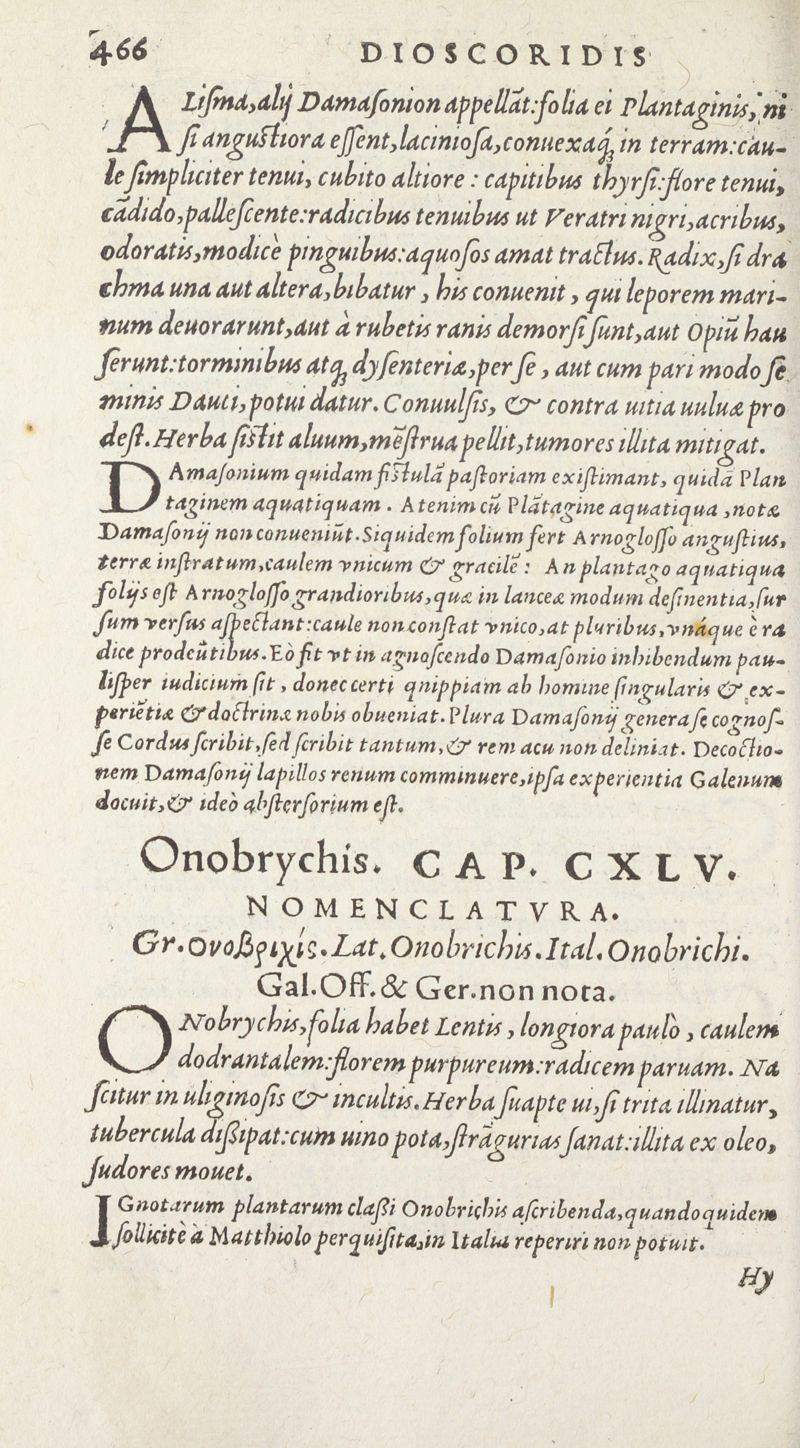 466 DIOSCORIDIS
ALisma,alij Damasonion appellãt:folia ei Plantaginis, ni
si angustiora essent,laciniosa,conuexaq́; in terram:cau-
le simpliciter tenui, cubito altiore : capitibus thyrsi:flore tenui,
cãdido,pallescente:radicibus tenuibus ut Veratri nigri,acribus,
odoratis,modicè pinguibus:aquosos amat tractus. Radix,si dra
chma una aut altera,bibatur , his conuenit , qui leporem mari-
num deuorarunt,aut à rubetis ranis demorsi sunt,aut Opiũ hau
serunt:torminibus atq; dysenteriæ,per se , aut cum pari modo se
minis Dauci,potui datur. Conuulsis, & contra uitia uuluæ pro
dest.Herba sistit aluum,mẽstrua pellit,tumores illita mitigat.
DAmasonium quidam fistulã pastoriam existimant, quidã Plan
taginem aquatiquam . Atenim cũ Plãtagine aquatiqua ,notæ
Damasonij non conueniũt.Siquidem folium fert Arnoglosso angustius,
terræ instratum,caulem vnicum & gracilẽ : An plantago aquatiqua
folijs est Arnoglosso grandioribus,quæ in lanceæ modum desinentia,sur
sum versus aspectant:caule non constat vnico,at pluribus,vnáque è ra
dice prodeũtibus.Eò fit vt in agnoscendo Damasonio inhibendum pau-
lisper iudicium sit , donec certi qnippiam ab homine singularis & ex-
periẽtiæ & doctrinæ nobis obueniat.Plura Damasonij genera se cognos-
se Cordus scribit,sed scribit tantum,& rem acu non deliniat. Decoctio-
nem Damasonij lapillos renum comminuere,ipsa experientia Galenum
docuit,& ideò absterforium est.
Onobrychis. CAP. CXLV.
NOMENCLATVRA.
Gr.Ονοβριχίς.Lat.Onobrichis.Ital.Onobrichi.
Gal.Off.& Ger.non nota.
ONobrychis,folia habet Lentis , longiora paulò , caulem
dodrantalem:florem purpureum:radicem paruam. Na
scitur in uliginosis & incultis.Herba suapte ui,si trita illinatur,
tubercula dissipat:cum uino pota,strãgurias sanat:illita ex oleo,
sudores mouet.
IGnotarum plantarum classi Onobrichis ascribenda,quandoquidem
sollicitè à Matthiolo perquisita,in Italia reperiri non potuit.
Hy